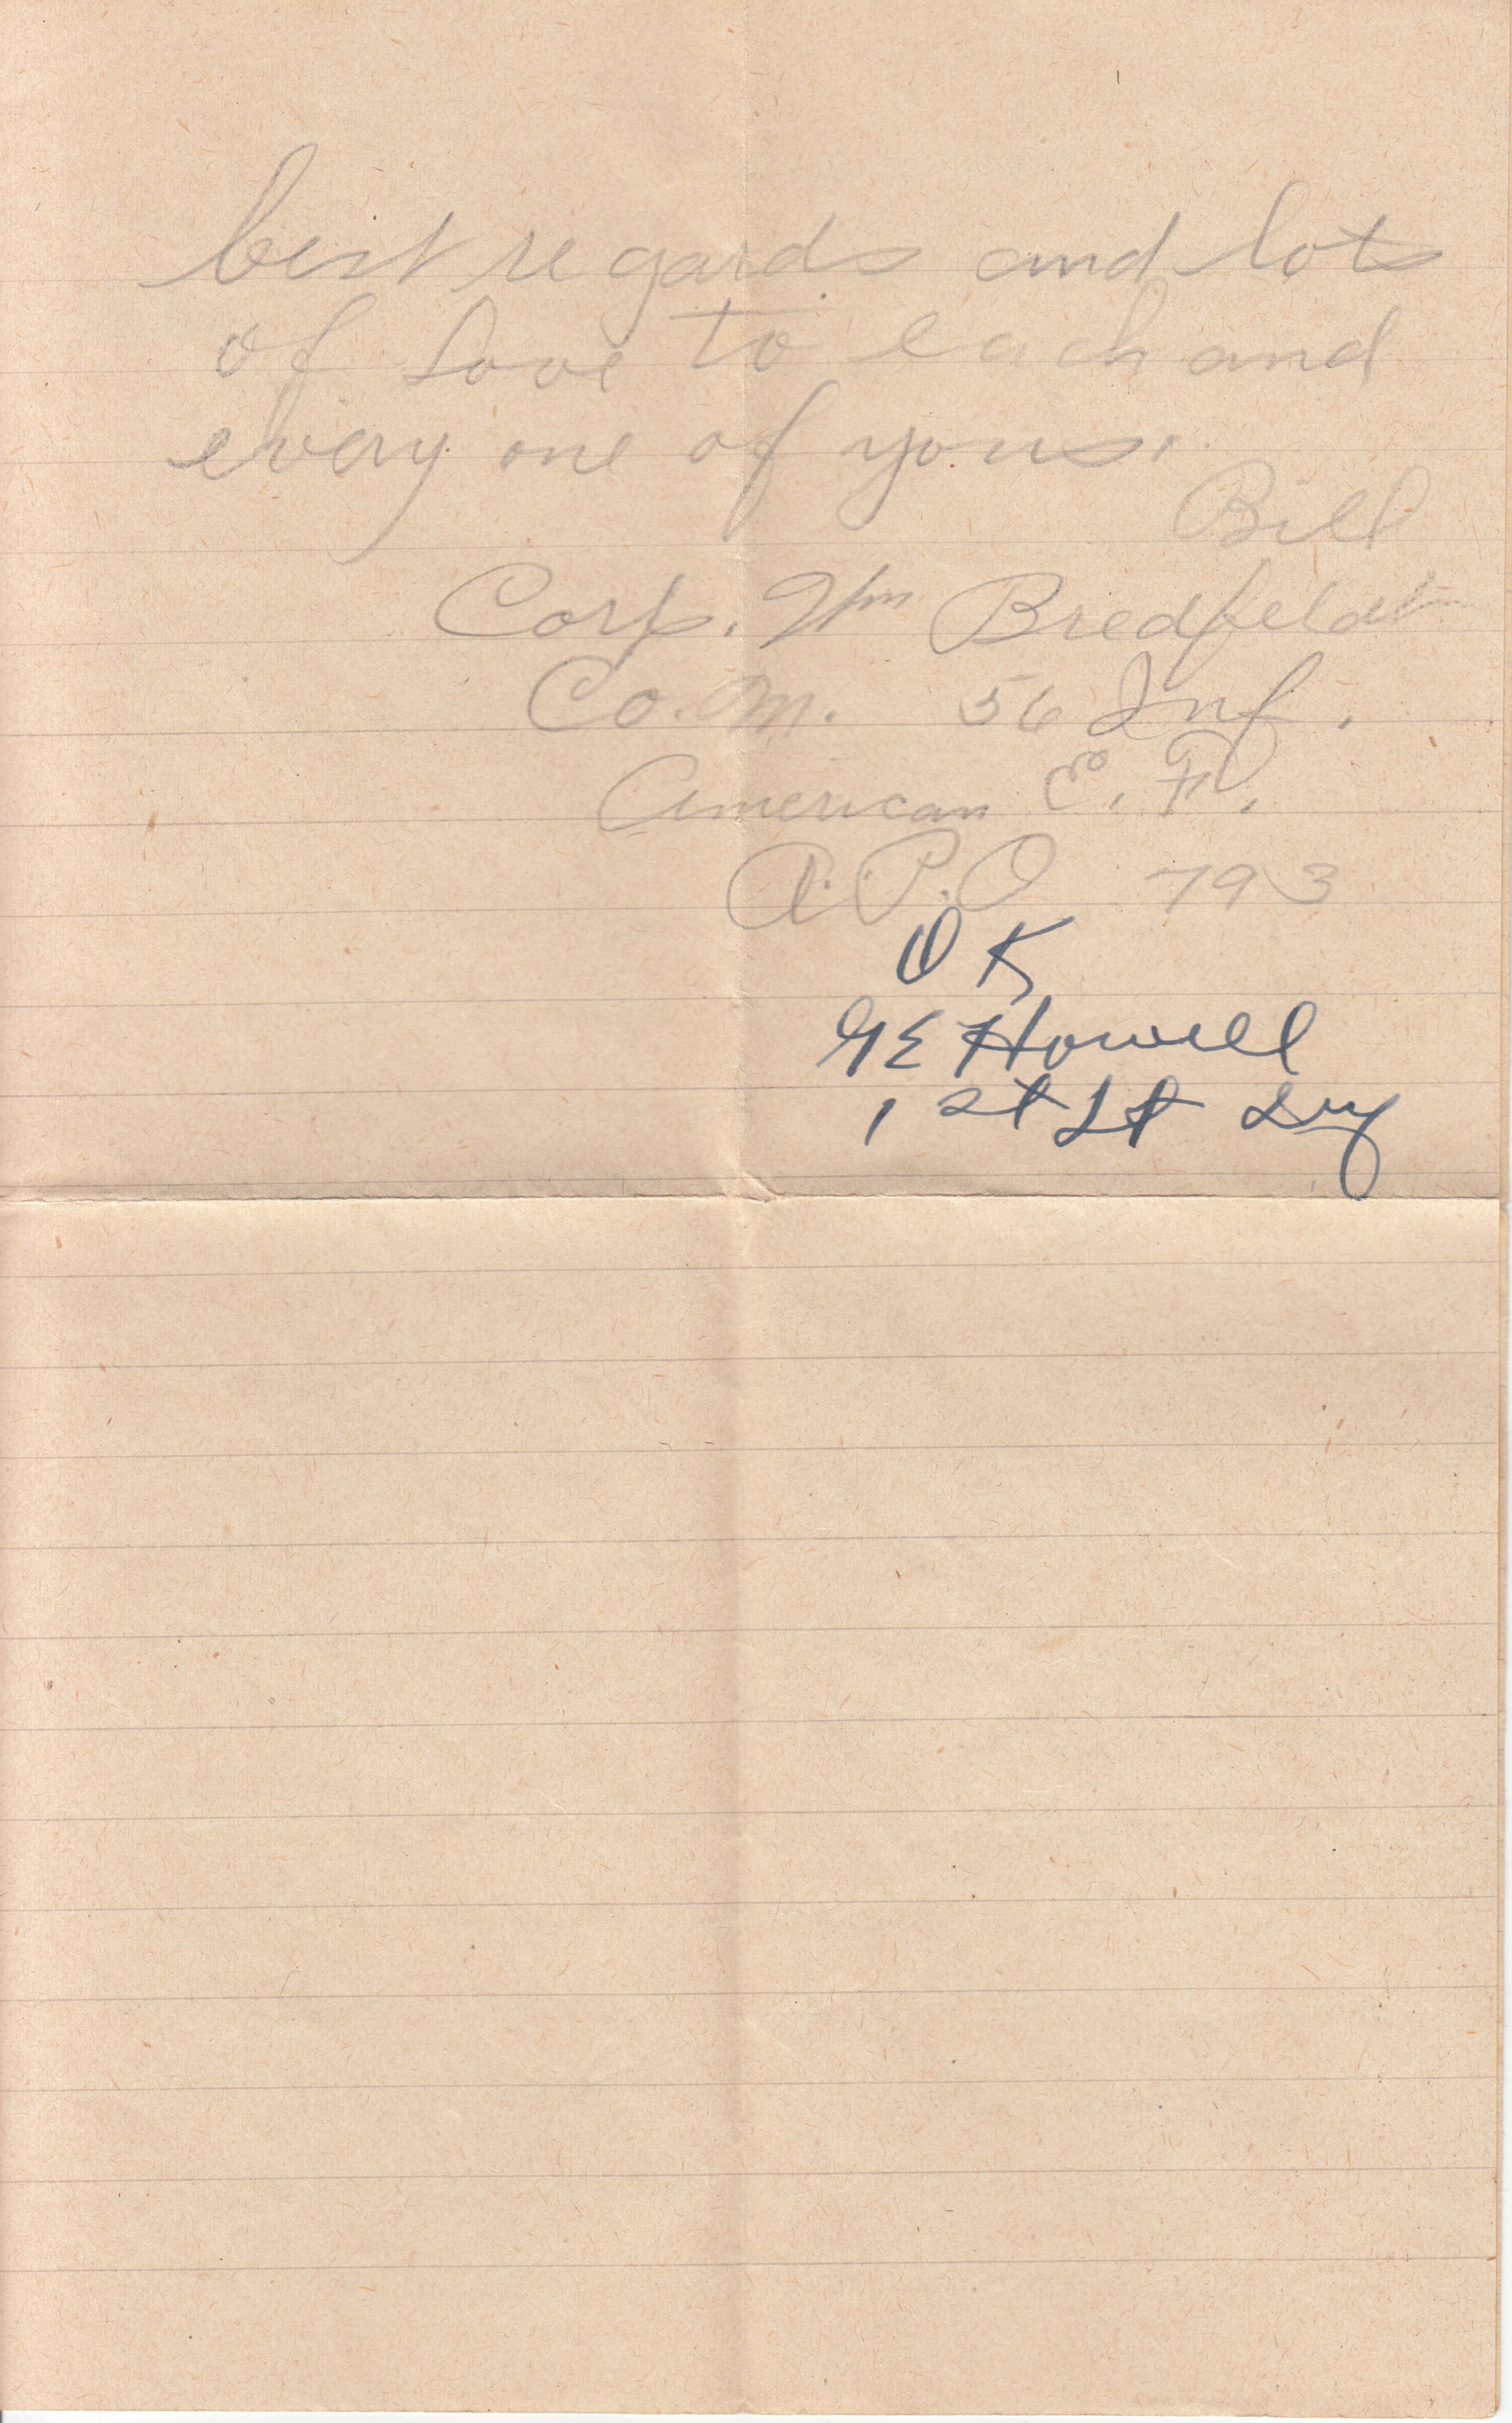 best regards and lots
of love to each and
every one of yous.
Bill
Corp. Wm Bredfeldt
Co. M. 56 Inf.
American E. F.
A.P.O 793
O K
G E Howell
1 st Lt Inf